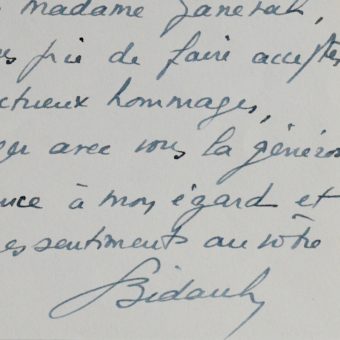 madame Janerat,
vous prie de faire accepter
ctueux hommages,
ger avec vous la généros
ence à mon égard et
es sentiments au vôtre
Bidault